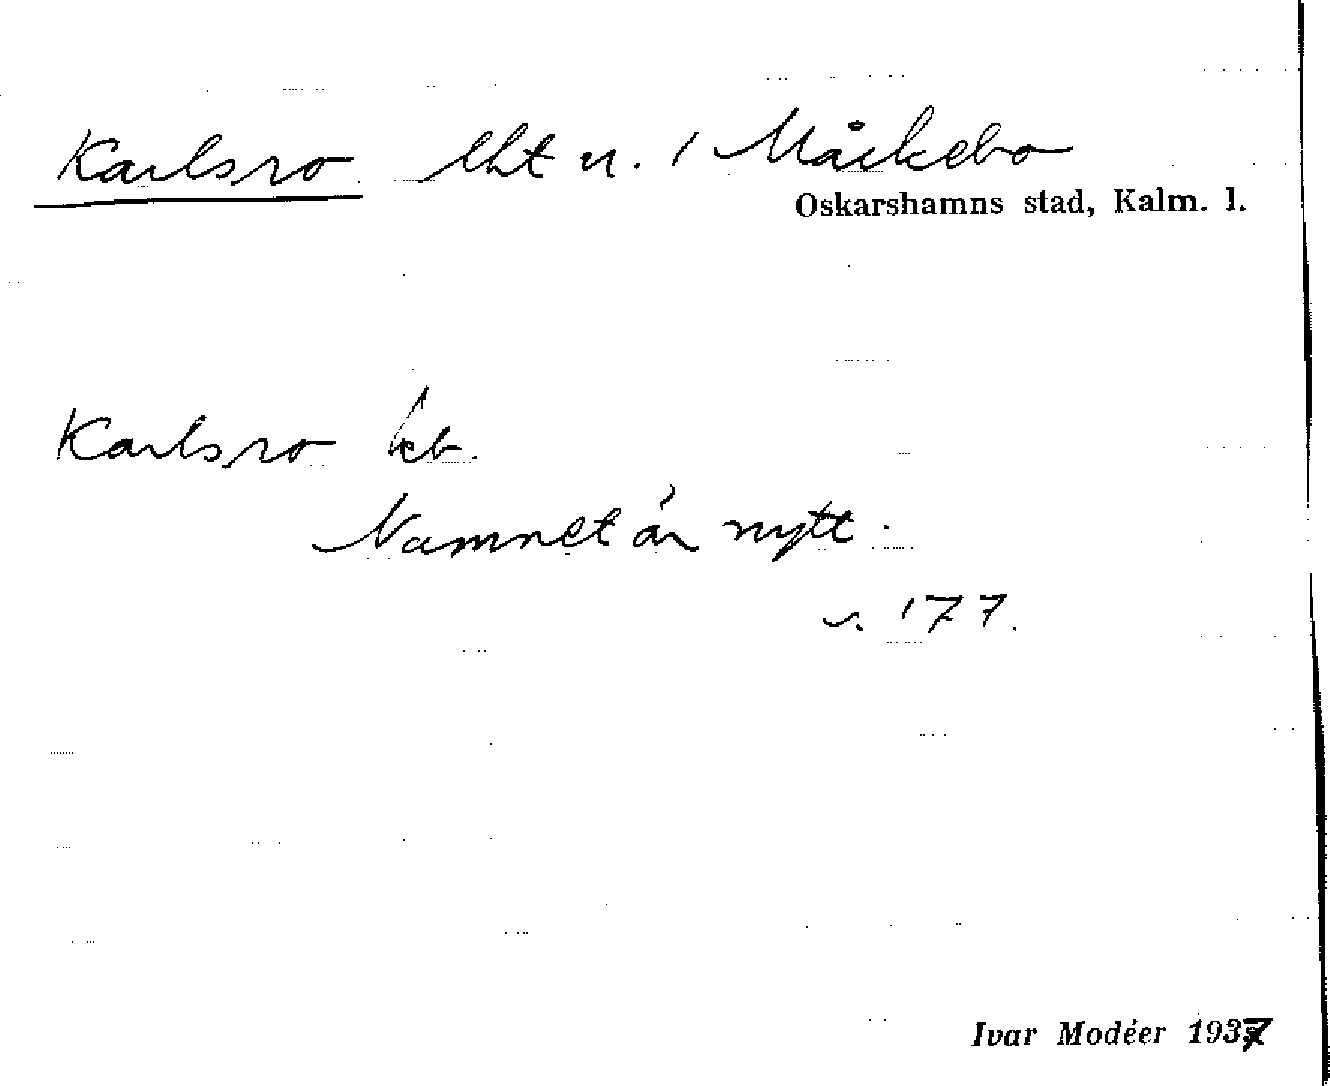 Karlsro lht u. / Måckebo
Oskarshamns stad, Kalm. l.
Karlsro
Namnet är nytt.
s. 177.
Ivar Modéer 1937